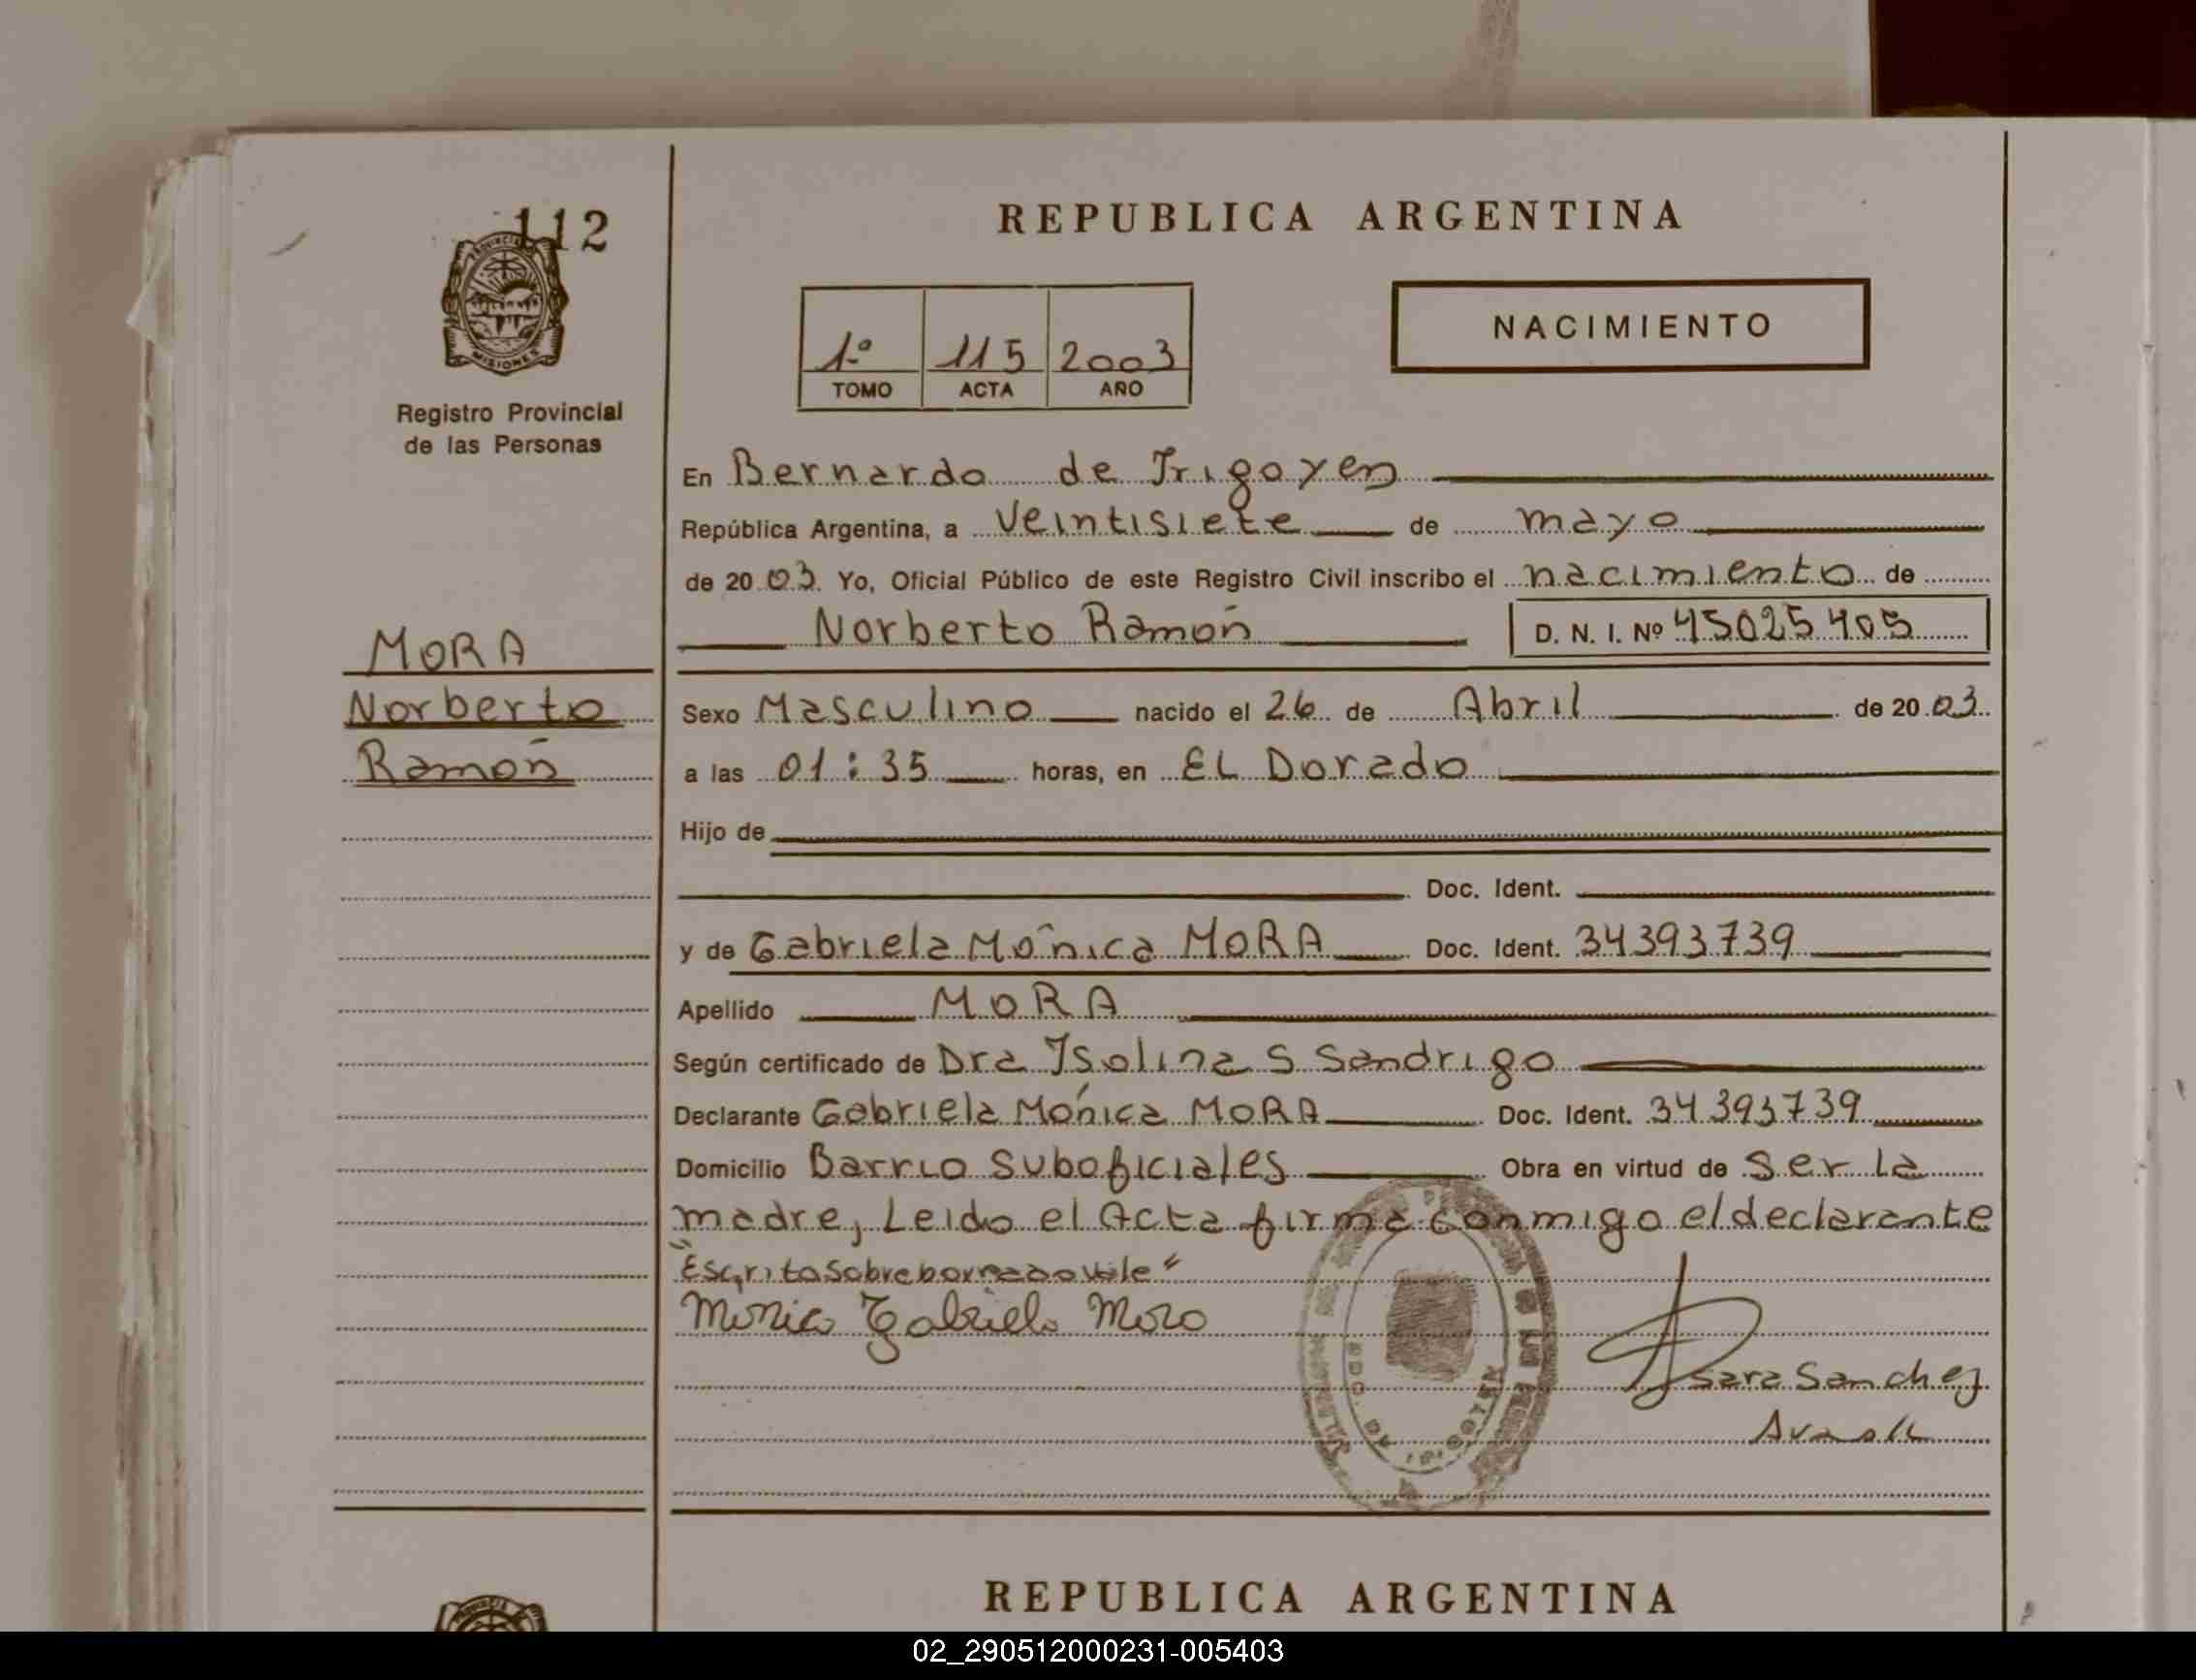 112
PROVINCIA DE
MISIONES
Registro Provincial
de las Personas
MORA
Norberto
Ramón
REPUBLICA ARGENTINA
1º 115 2003
TOMO ACTA AÑO
NACIMIENTO
En Bernardo de Irigoyen
República Argentina, a veintisiete de mayo
de 2003. Yo, Oficial Público de este Registro Civil inscribo el nacimiento de
Norberto Ramón D. N. I. Nº 45025405
Sexo Masculino nacido el 26 de Abril de 2003
a las 01:35 horas, en EL Dorado
Hijo de
Doc. Ident.
y de Gabriela Mónica MORA Doc. Ident. 34393739
Apellido MORA
Según certificado de Dra Isolina S Sandrigo
Declarante Gabriela Mónica MORA Doc. Ident. 34393739
Domicilio Barrio Suboficiales Obra en virtud de ser la
madre, Leido el Acta firma conmigo el declarante
"Escrito sobre borrado vale"
Monica Gabriela Mora
Sara Sanchez
REPUBLICA ARGENTINA
02_290512000231-005403